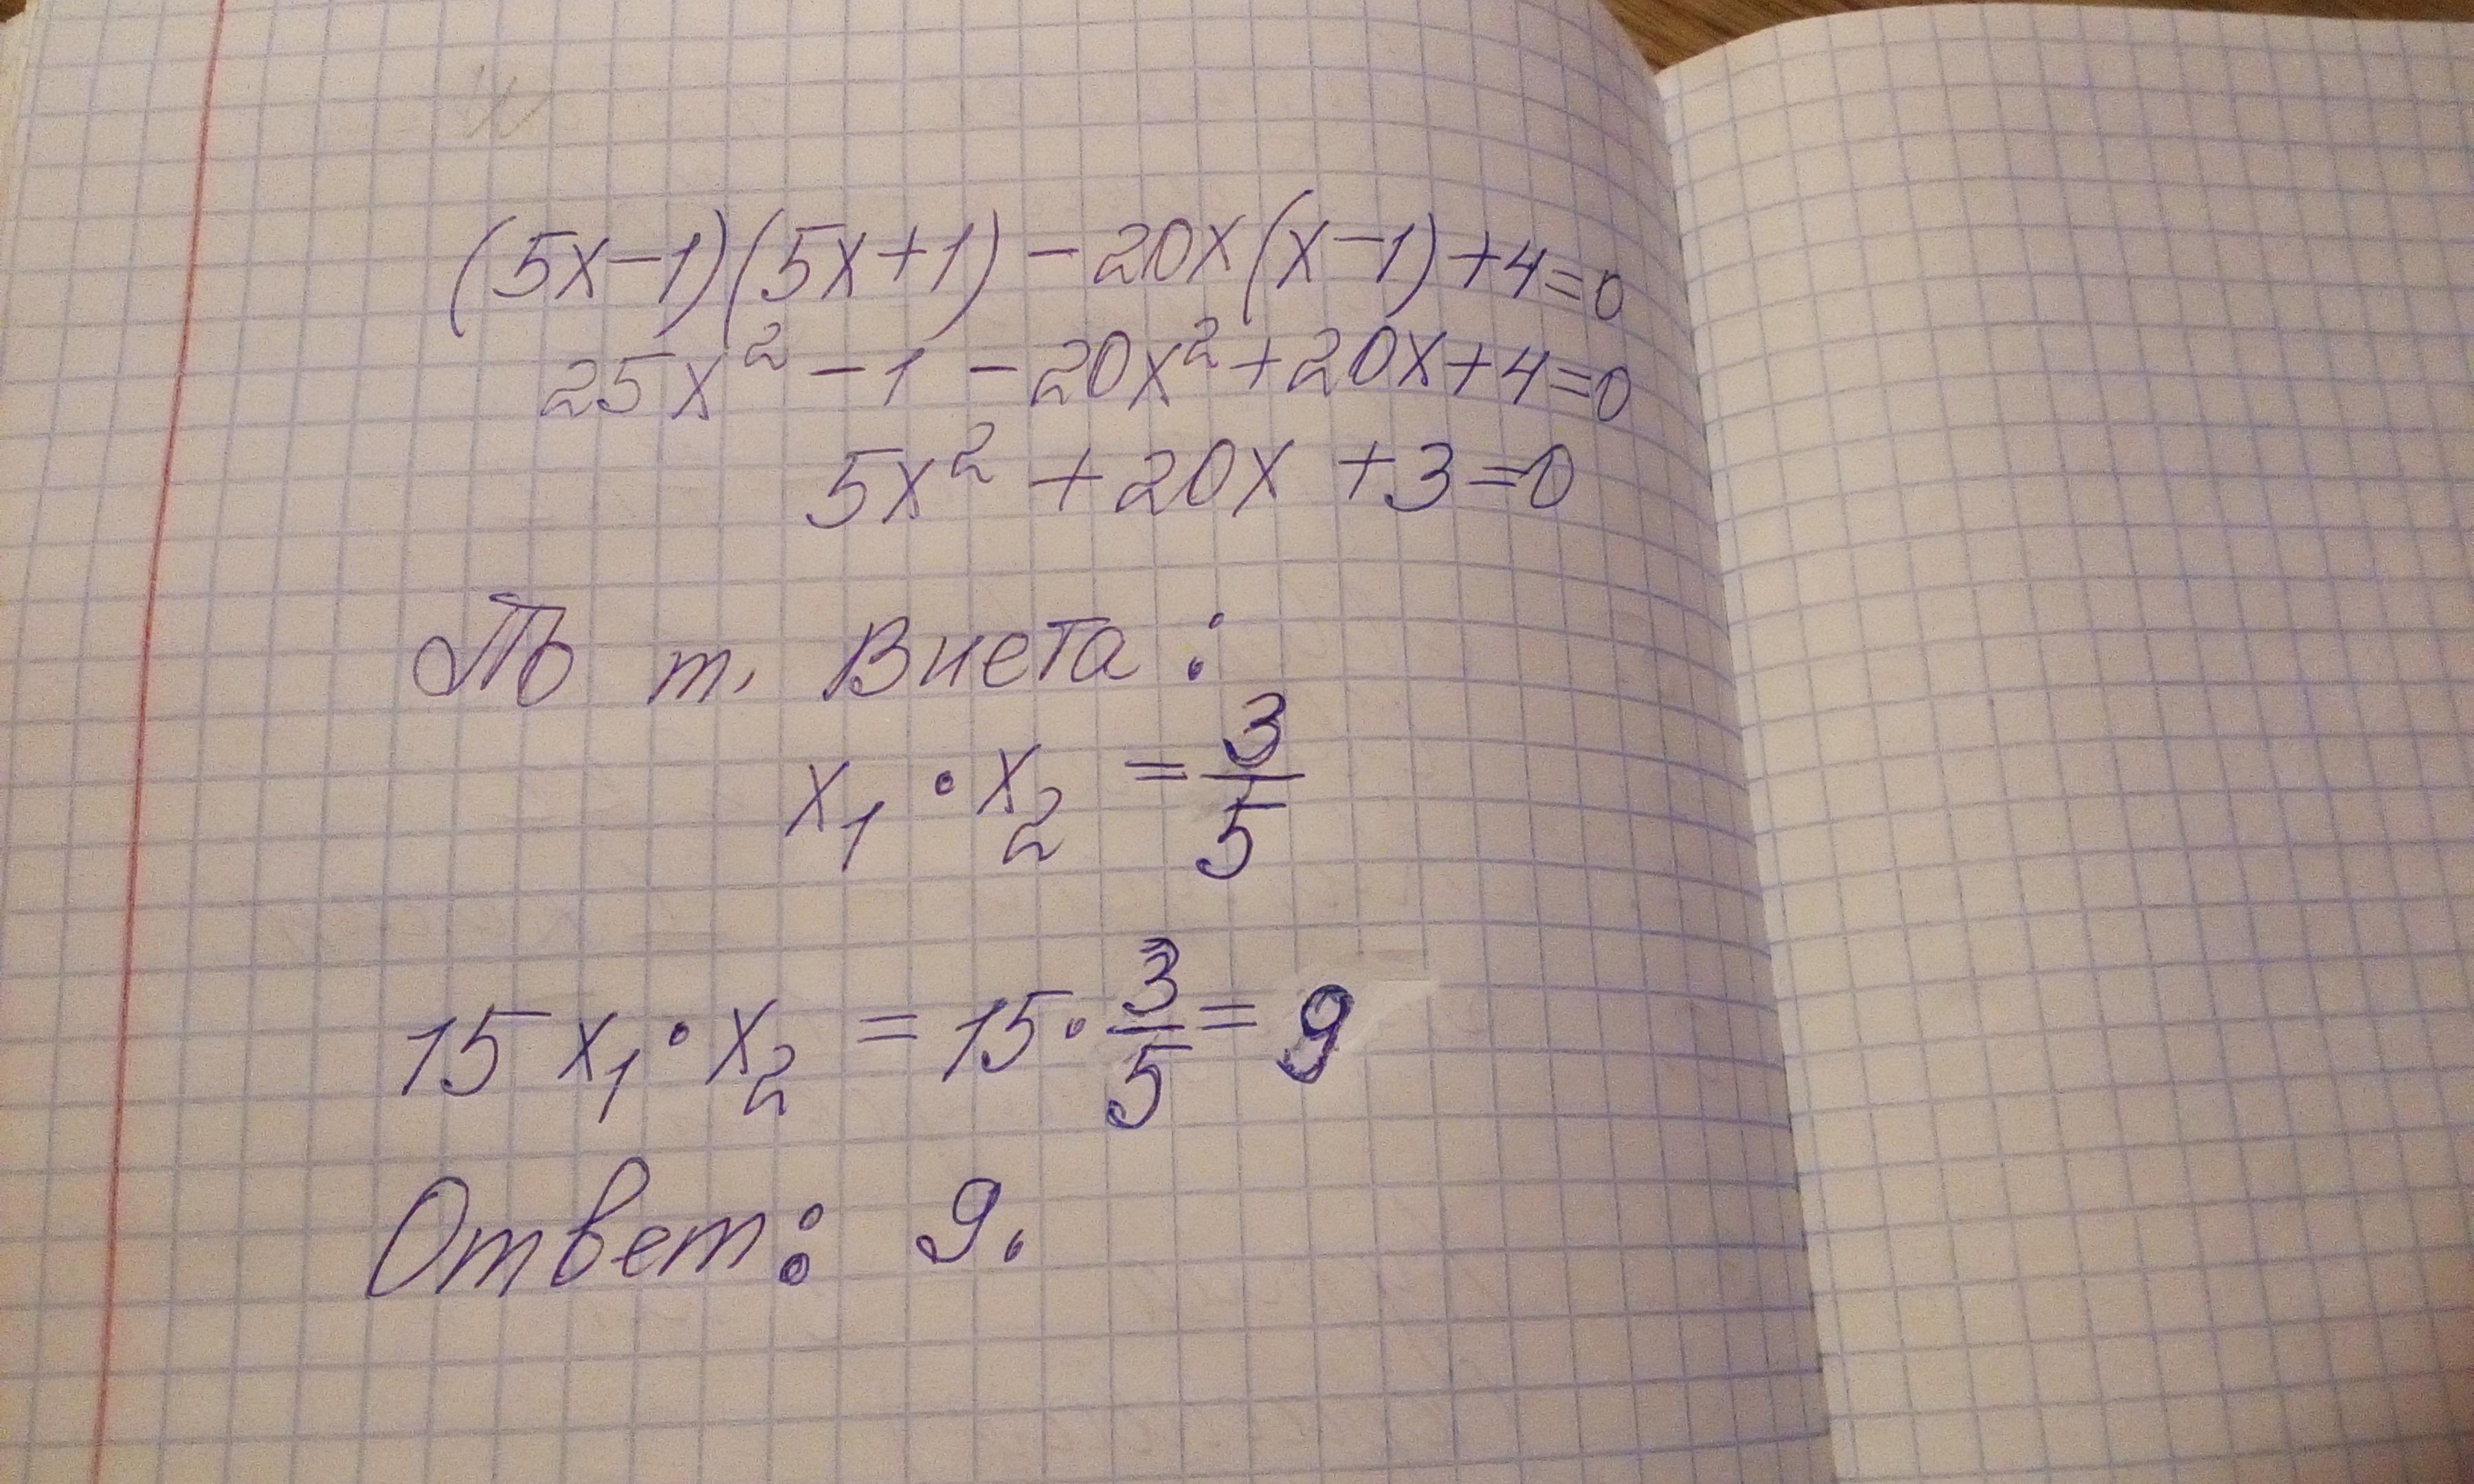 (5x-1)(5x+1)-20x(x-1)+4=0
25x²-1-20x²+20x+4=0
5x²+20x+3=0
По т. Виета:
x₁·x₂=3/5
15x₁·x₂=15·3/5=9
Ответ: 9.